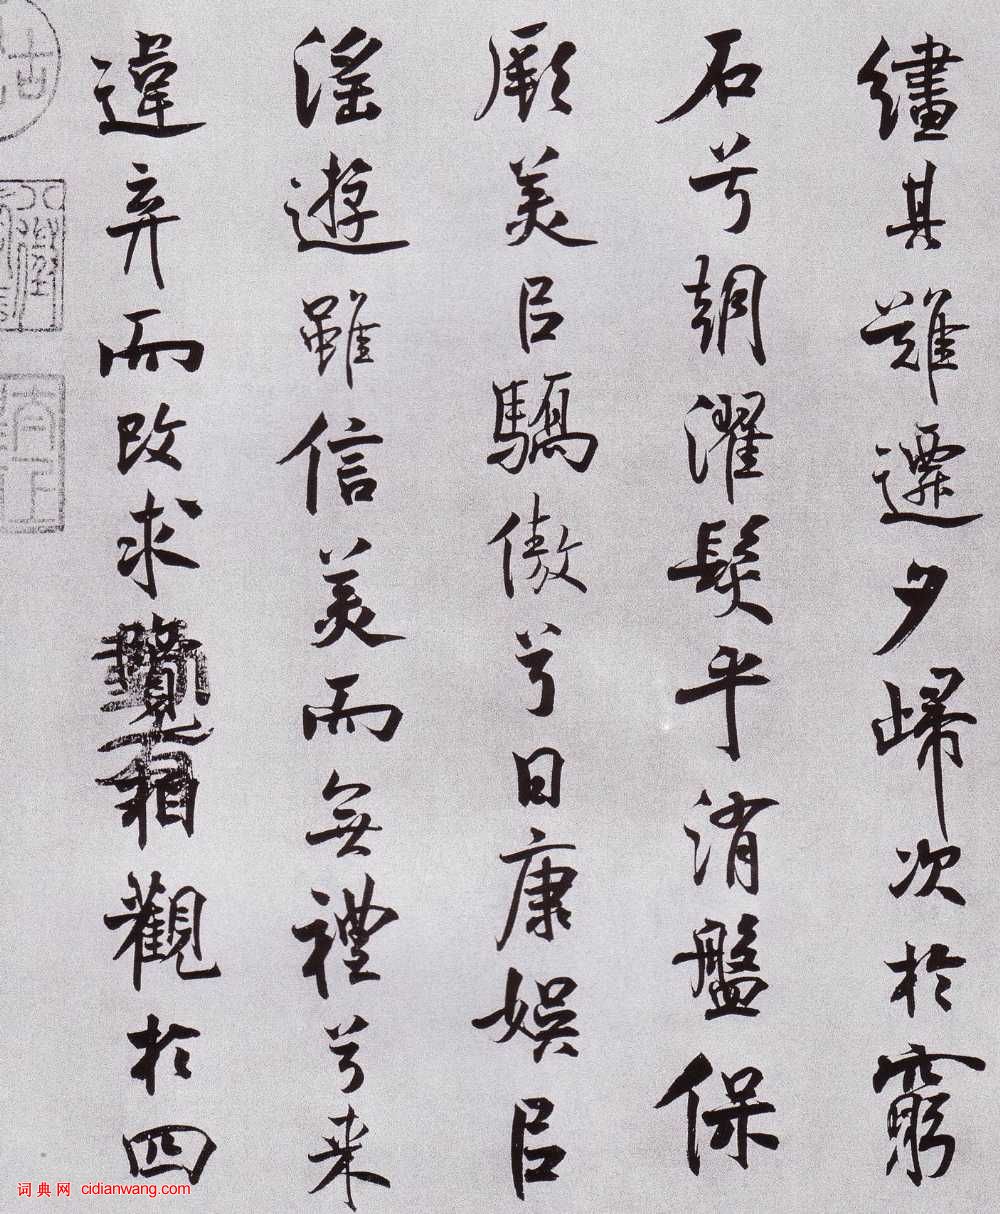 繣其難遷夕歸次於窮
石兮朝濯髮乎消盤保
厥美㠯驕傲兮日康娛㠯
滛遊雖信美而無禮兮来
違弃而改求覽相觀於四
词典网 cidianwang.com